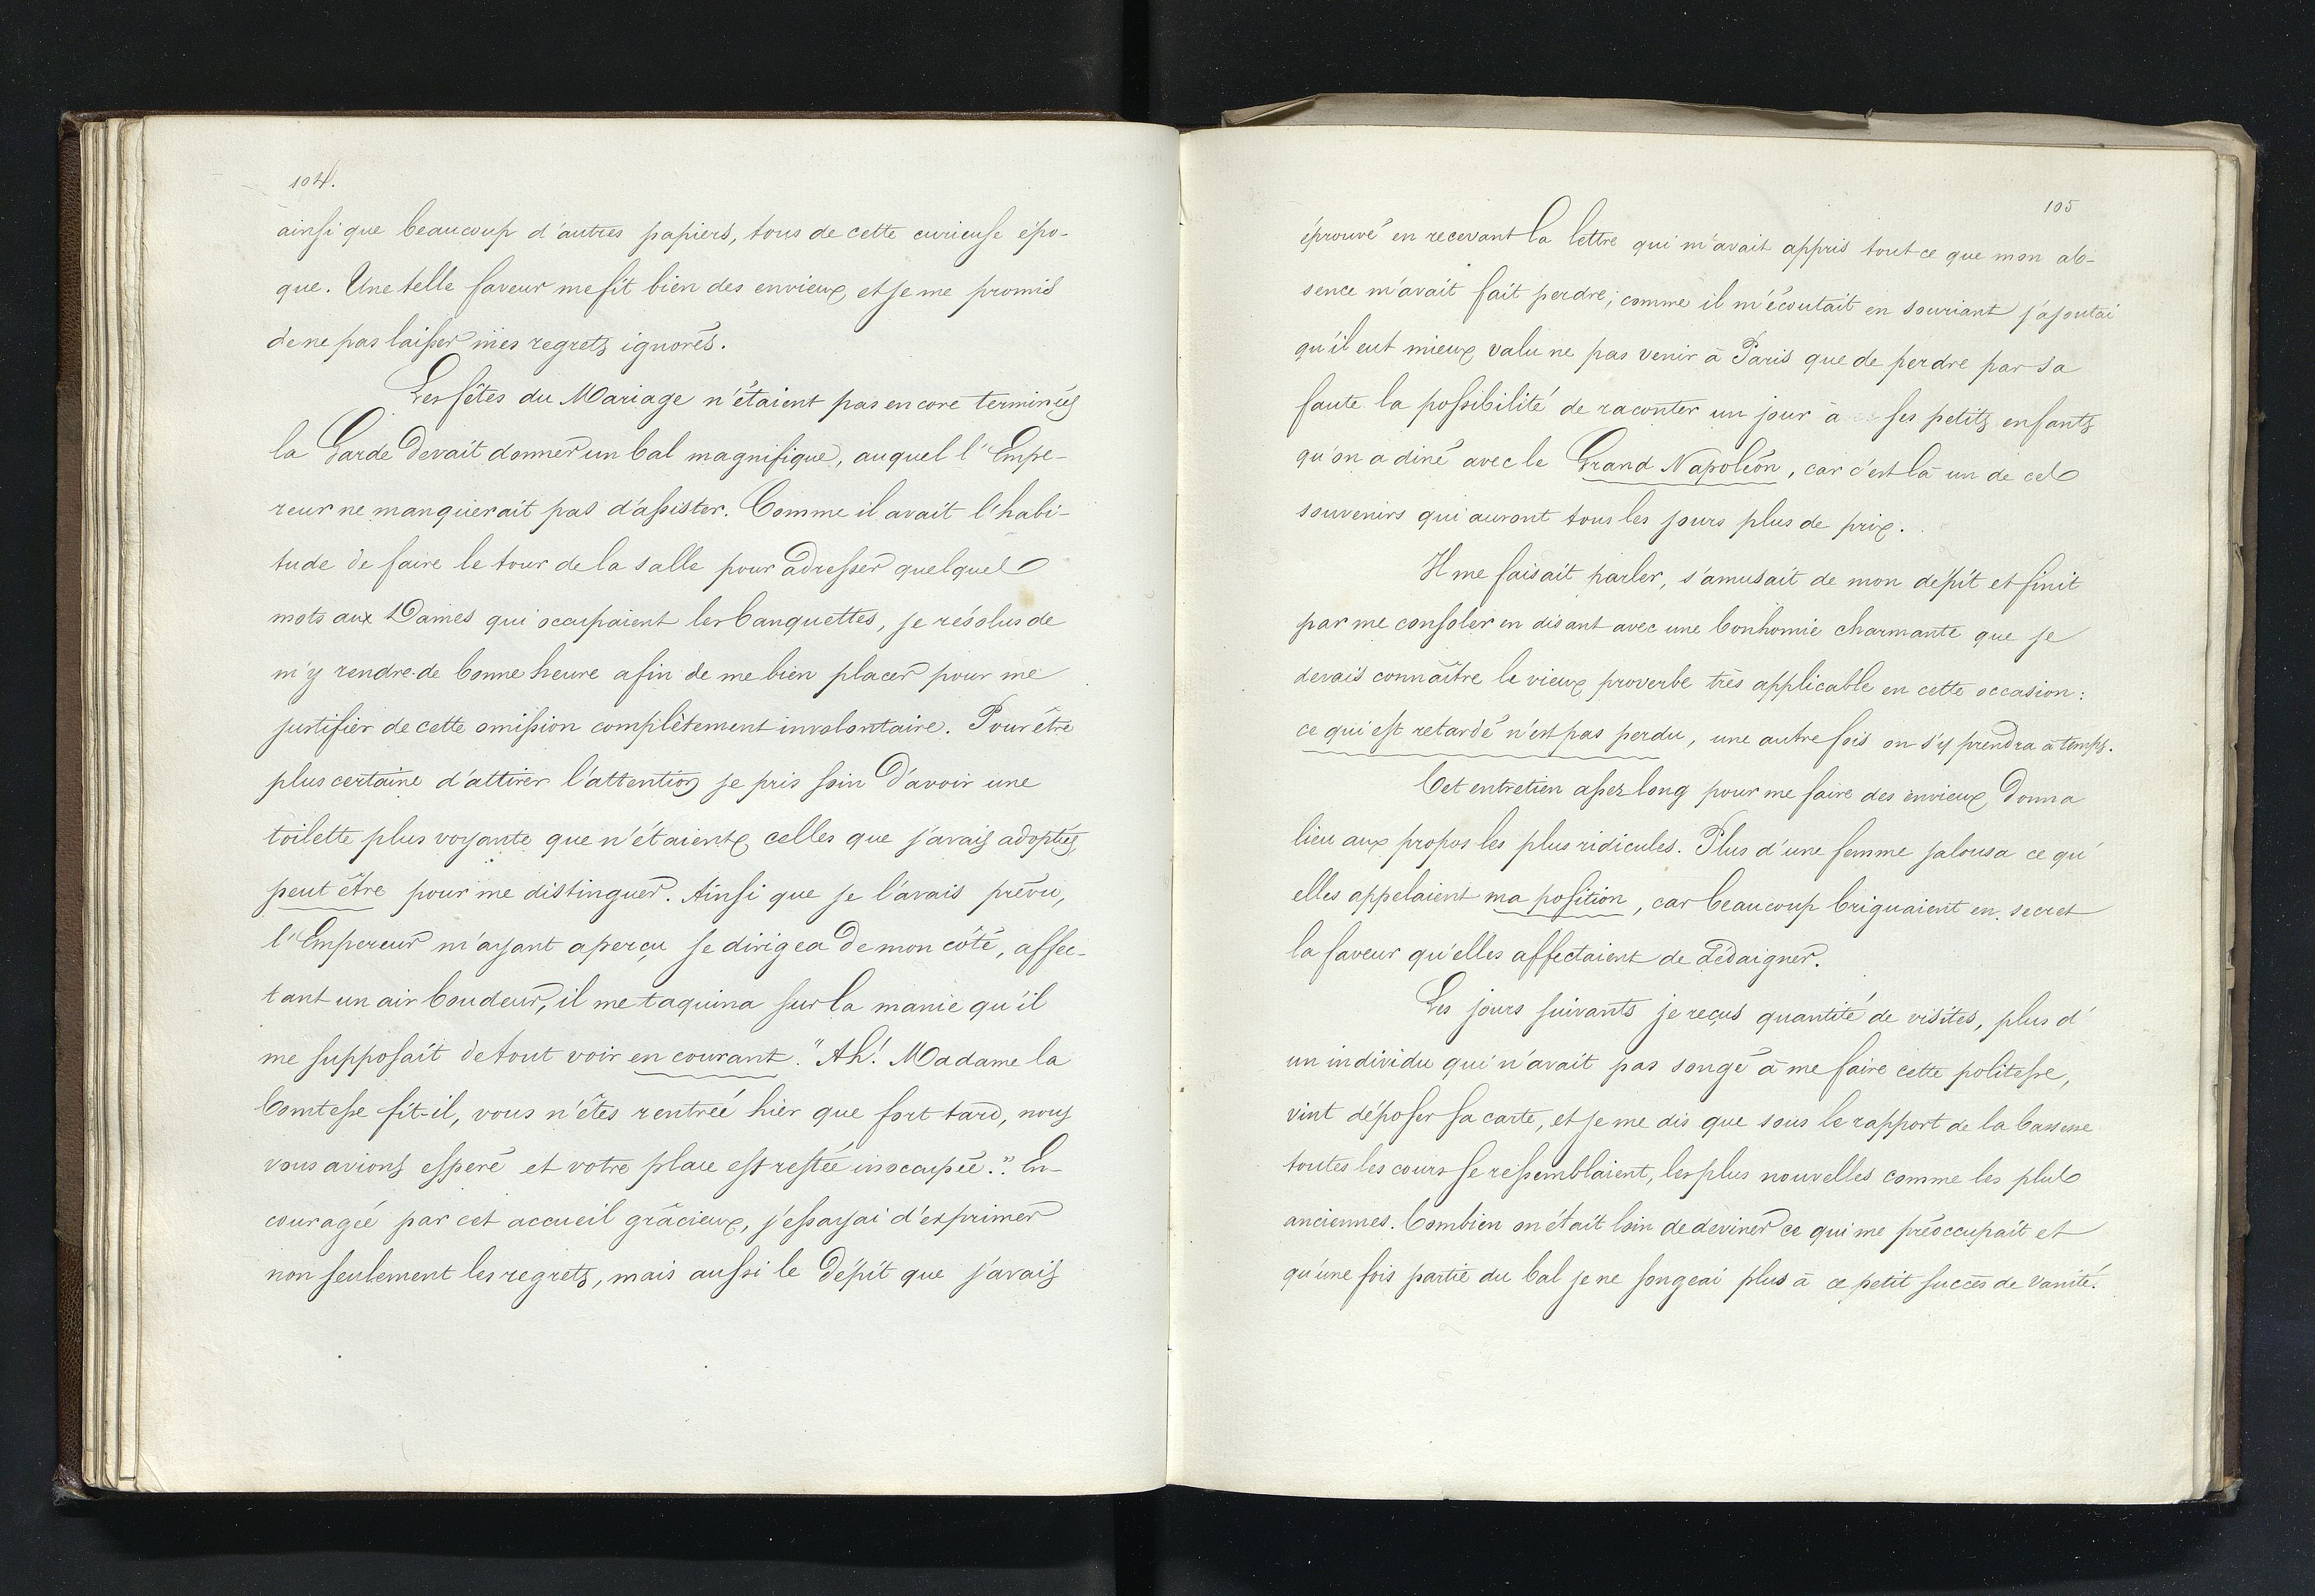 104.
ainsi que beaucoup d'autres papiers, tous de cette curieuse épo-
que. Une telle faveur me fit bien des envieux et je me promis
de ne pas laisser mes regrets ignorés.
Les fêtes du Mariage n'étaient pas encore terminées
la Garde devait donner un bal magnifique, auquel l'Empe-
reur ne manquerait pas d'assister. Comme il avait l'habi-
tude de faire le tour de la salle pour adresser quelques
mots aux Dames qui occupaient les banquettes, je résolus de
m'y rendre de bonne heure afin de me bien placer pour me
justifier de cette omission complètement involontaire. Pour être
plus certaine d'attirer l'attention je pris soin d'avoir une
toilette plus voyante que n'étaient celles que j'avais adoptées,
peut être pour me distinguer. Ainsi que je l'avais prévu,
l'Empereur m'ayant aperçu se dirigea de mon côté, affec-
tant un air boudeur, il me taquina sur la manie qu'il
me supposait de tout voir en courant. "Ah! Madame la
Comtesse fit-il, vous n'êtes rentrée hier que fort tard, nous
vous avions esperé et votre place est restée inoccupée." En-
couragée par cet accueil grâcieux, j'essayai d'exprimer
non seulement les regrets, mais aussi le dépit que j'avais
105
éprouvé en recevant la lettre qui m'avait appris tout ce que mon ab-
sence m'avait fait perdre; comme il m'écoutait en souriant j'ajoutai
qu'il eut mieux valu ne pas venir à Paris que de perdre par sa
faute la possibilité de raconter un jour à ses petits enfants
qu'on a diné avec le Grand Napoléon, car c'est là un de ces
souvenirs qui auront tous les jours plus de prix.
Il me faisait parler, s'amusait de mon dépit et finit
par me consoler en disant avec une bonhomie charmante que je
devais connaître le vieux proverbe très applicable en cette occasion:
ce qui est retardé n'est pas perdu, une autre fois on s'y prendra à temps.
Cet entretien assez long pour me faire des envieux donna
lieu aux propos les plus ridicules. Plus d'une femme jalousa ce qu'
elles appelaient ma position, car beaucoup briguaient en secret
la faveur qu'elles affectaient de dédaigner.
Les jours suivants je reçus quantité de visites, plus d'
un individu qui n'avait pas songé à me faire cette politesse,
vint déposer sa carte, et je me dis que sous le rapport de la bassesse
toutes les cours se ressemblaient, les plus nouvelles comme les plus
anciennes. Combien on était loin de deviner ce qui me préoccupait et
qu'une fois partie du bal je ne songeai plus à ce petit succès de vanité.